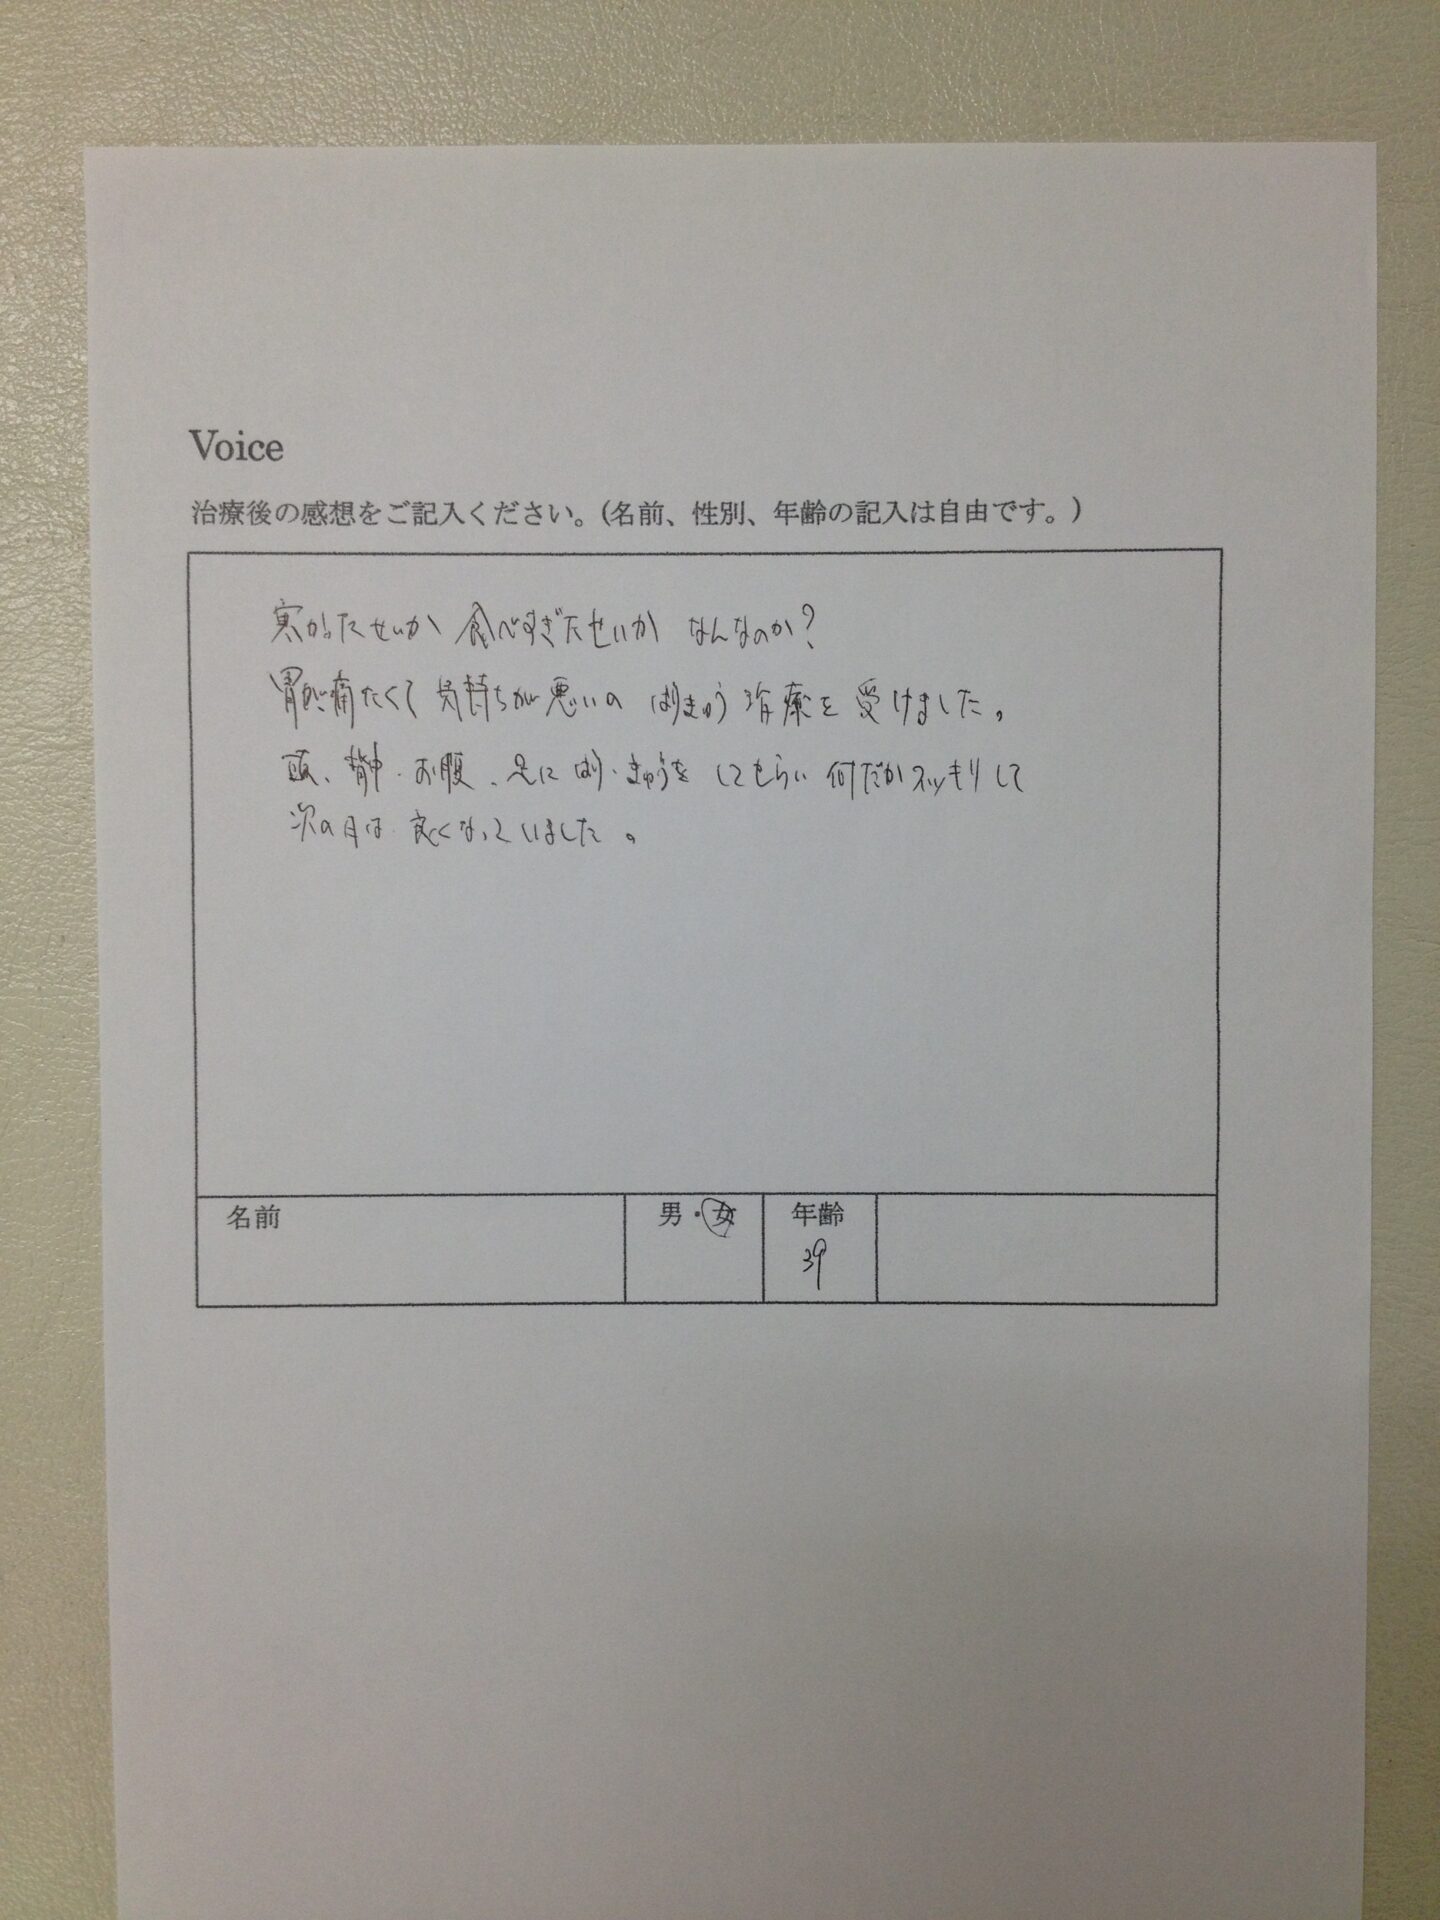 Voice
治療後の感想をご記入ください。(名前、性別、年齢の記入は自由です。)
寒かったせいか 食べすぎたせいか なんなのか?
胃が痛たくて 気持ちが悪いの はりきゅう 治療を 受けました。
頭、背中・お腹、足に はり・きゅうを してもらい 何だかスッキリして
次の日は 良くなっていました。
名前 男・女 年齢
39